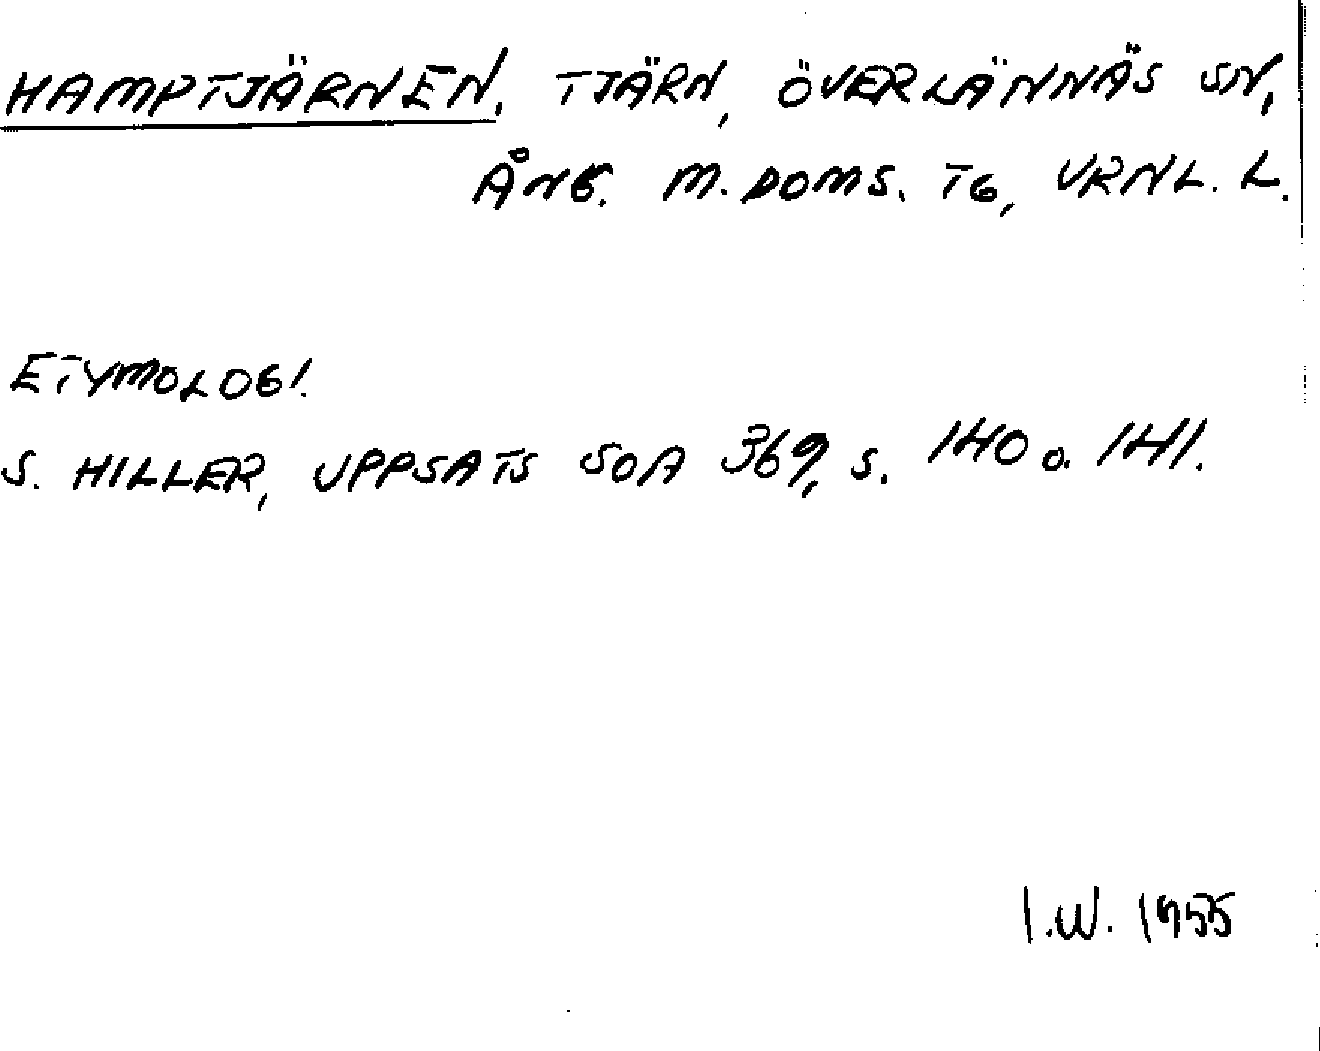 HAMPTJÄRNEN, TJÄRN, ÖVERLÄNNÄS SN,
ÅNG. M. DOMS. TG, VRNL. L.
ETYMOLOGI.
S. HILLER, UPPSATS SOA 369, S. 140 o. 141.
I.W. 1955